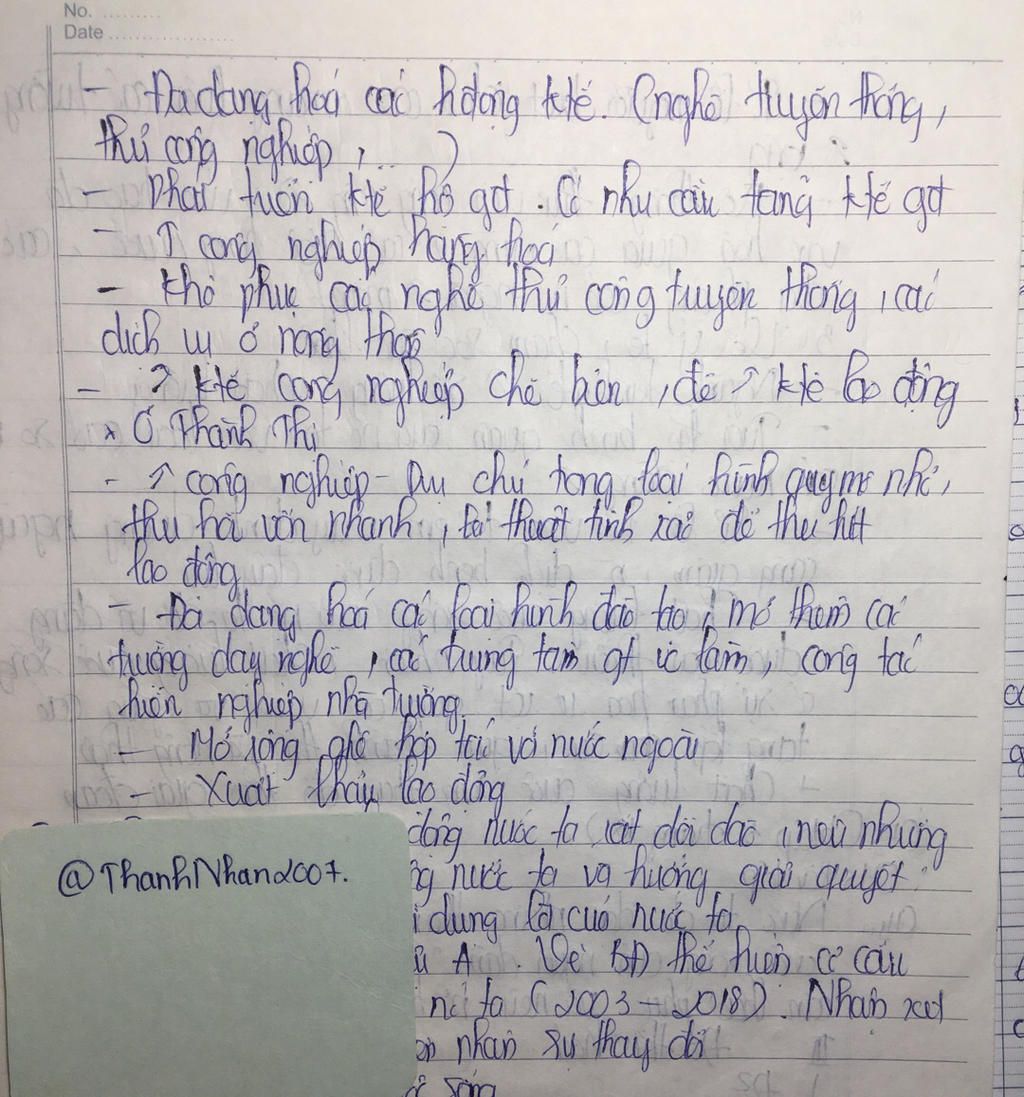 No. ..........
Date ....................
- Đa dạng hoá các hđộng ktế. (nghề truyền thống,
thủ công nghiệp, ...)
- Phát triển ktế hộ gđ. Có nhu cầu tăng ktế gđ
- ↑ công nghiệp hàng hoá
- khô phục các nghề thủ công truyền thống, các
dịch vụ ở nông thôn
- ↗ ktế công nghiệp chế biến, để ↗ ktế lao động
* Ở Thành Thị
- ↗ công nghiệp - Dv chú trọng loại hình quy mô nhỏ,
thu hồi vốn nhanh, kĩ thuật tinh xảo để thu hút
lao động
- Đa dạng hoá các loại hình đào tạo, mở thêm các
trường dạy nghề, các trung tâm gt vc làm, công tác
hướng nghiệp nhà trường
- Mở rộng hợp tác với nước ngoài
- Xuất khẩu lao động
động nước ta rất dồi dào, nêu những
ng nước ta và hướng giải quyết
dụng lđ của nước ta
@ThanhNhan2007.
A. Vẽ BĐ thể hiện cơ cấu
nc ta (2003 - 2018). Nhận xét
nhân sự thay đổi
sống